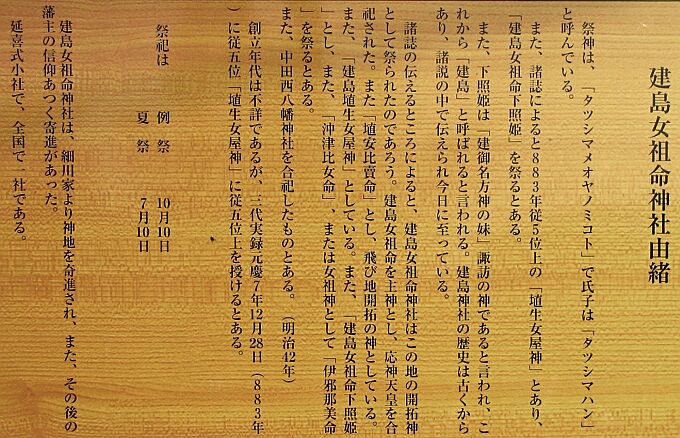 建島女祖命神社由緒
祭神は、「タツシマメオヤノミコト」で氏子は「タツシマハン」
と呼んでいる。
また、諸誌によると８８３年従５位上の「埴生女屋神」とあり、
「建島女祖命下照姫」を祭るとある。
また、下照姫は「建御名方神の妹」諏訪の神であると言われ、こ
れから「建島」と呼ばれると言われる。建島神社の歴史は古くから
あり、諸説の中で伝えられ今日に至っている。
諸誌の伝えるところによると、建島女祖命神社はこの地の開拓神
として祭られたのであろう。建島女祖命を主神とし、応神天皇を合
祀された。また「埴安比賣命」とし、飛び地開拓の神としている。
また、「建島埴生女屋神」としている。また、「建島女祖命下照姫
」とし、また、「沖津比女命」、または女祖神として「伊邪那美命
」を祭るとある。
また、中田西八幡神社を合祀したものとある。（明治42年）
創立年代は不詳であるが、三代実録元慶７年12月28日（８８３年
）に従五位「埴生女屋神」に従五位上を授けるとある。
祭祀は　例　祭　10月10日
夏　祭　７月10日
建島女祖命神社は、細川家より神地を奇進され、また、その後の
藩主の信仰あつく寄進があった。
延喜式小社で、全国で一社である。